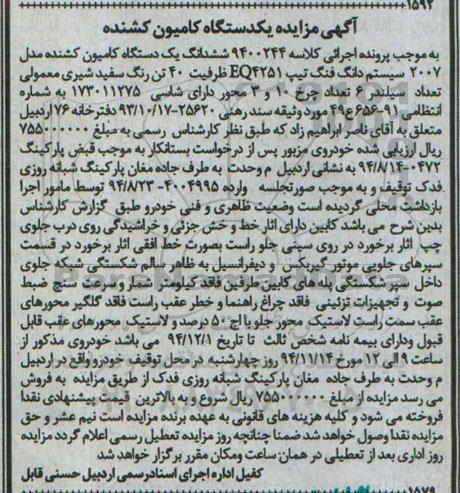 ۱۵۹۲
آگهی مزایده یکدستگاه کامیون کشنده
به موجب پرونده اجرائی کلاسه ۹۴۰۰۲۴۴ ششدانگ یک دستگاه کامیون کشنده مدل
۲۰۰۷ سیستم دانگ فنگ تیپ EQ۴۲۵۱ ظرفیت ۴۰ تن رنگ سفید شیری معمولی
تعداد سیلندر ۶ تعداد چرخ ۱۰ و ۳ محور دارای شاسی ۱۷۳۰۱۱۲۷۵ به شماره
انتظامی ۹۱-۶۵۶ع۴۹ مورد وثیقه سند رهنی ۲۵۶۲۰-۹۳/۱۰/۱۷ دفترخانه ۷۶ اردبیل
متعلق به آقای ناصر ابراهیم زاد که طبق نظر کارشناس رسمی به مبلغ ۷۵۵۰۰۰۰۰۰
ریال ارزیابی شده خودروی مزبور پس از درخواست بستانکار به موجب قبض پارکینگ
۰۴۷۲-۹۴/۸/۱۴ به نشانی اردبیل م وحدت به طرف جاده مغان پارکینگ شبانه روزی
فدک توقیف و به موجب صورتجلسه وارده ۴۰۰۴۹۹۵-۹۴/۸/۲۳ توسط مامور اجرا
بازداشت محلی گردیده است وضعیت ظاهری و فنی خودرو طبق گزارش کارشناس
بدین شرح می باشد کابین دارای آثار خط و خش جزئی و خراشیدگی روی درب جلوی
چپ آثار برخورد در روی سینی جلو راست بصورت خط افقی آثار برخورد در قسمت
سپرهای جلویی موتور گیربکس و دیفرانسیل به ظاهر سالم شکستگی شبکه جلوی
داخل سپر شکستگی پله های کابین طرفین فاقد کیلومتر شمار و سرعت سنج ضبط
صوت و تجهیزات تزئینی فاقد چراغ راهنما و خطر عقب راست فاقد گلگیر محورهای
عقب سمت راست لاستیک محور جلو با اج ۵۰ درصد و لاستیک محورهای عقب قابل
قبول ودارای بیمه نامه شخص ثالث تا تاریخ ۹۴/۱۲/۱ می باشد خودروی مذکور از
ساعت ۹ الی ۱۲ مورخ ۹۴/۱۱/۱۴ روز چهارشنبه در محل توقیف خودرو واقع در اردبیل
م وحدت به طرف جاده مغان پارکینگ شبانه روزی فدک از طریق مزایده به فروش
می رسد مزایده از مبلغ ۷۵۵۰۰۰۰۰۰ ریال شروع و به بالاترین قیمت پیشنهادی نقدا
فروخته می شود و کلیه هزینه های قانونی به عهده برنده مزایده است نیم عشر و حق
مزایده نقدا وصول خواهد شد ضمنا چنانچه روز مزایده تعطیل رسمی اعلام گردد مزایده
روز اداری بعد از تعطیلی در همان ساعت ومکان مقرر برگزار خواهد شد
کفیل اداره اجرای اسنادرسمی اردبیل حسنی قابل
۱۵۷۹